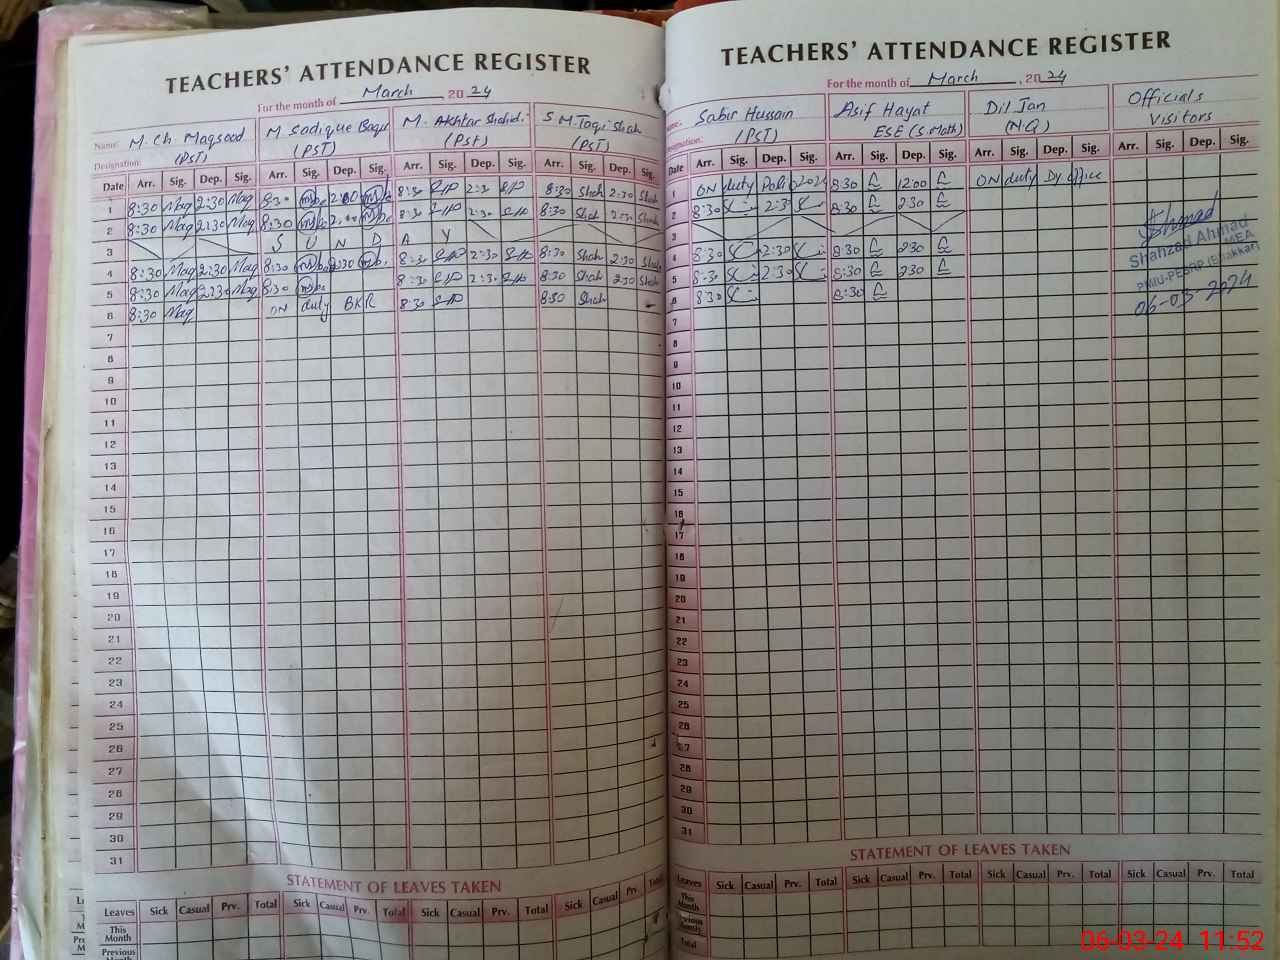 TEACHERS' ATTENDANCE REGISTER
For the month of March 2024
Name: M. Ch Maqsood M Sadique Baqir M. Akhtar Shahid. S M Taqi Shah
Designation: (PST) (PST) (PST) (PST)
Date Arr. Sig. Dep. Sig. Arr. Sig. Dep. Sig. Arr. Sig. Dep. Sig. Arr. Sig. Dep. Sig.
1 8:30 Maq 2:30 Maq 8:30 2:00 8:30 2:30 8:30 Shah 2:30 Shah
2 8:30 Maq 2:30 Maq 8:30 2:00 8:30 2:30 8:30 Shah 2:30 Shah
3 S U N D A Y
4 8:30 Maq 2:30 Maq 8:30 2:30 8:30 2:30 8:30 Shah 2:30 Shah
5 8:30 Maq 2:30 Maq 8:30 8:30 2:30 8:30 Shah 2:30 Shah
6 8:30 Maq ON duty BKR 8:30 8:30 Shah
7
8
9
10
11
12
13
14
15
16
17
18
19
20
21
22
23
24
25
26
27
28
29
30
31
STATEMENT OF LEAVES TAKEN
Leaves Sick Casual Prv. Total Sick Casual Prv. Total Sick Casual Prv. Total Sick Casual Prv. Total
This Month
Previous Month
TEACHERS' ATTENDANCE REGISTER
For the month of March, 2024
Name: Sabir Hussain Asif Hayat Dil Jan Officials
Designation: (PST) ESE (S.Math) (N.Q) Visitors
Date Arr. Sig. Dep. Sig. Arr. Sig. Dep. Sig. Arr. Sig. Dep. Sig. Arr. Sig. Dep. Sig.
1 ON duty 2024 8:30 12:00 ON duty Dy office
2 8:30 2:30 8:30 2:30
3
4 8:30 2:30 8:30 2:30
5 8:30 2:30 8:30 2:30
6 8:30 8:30
7
8
9
10
11
12
13
14
15
16
17
18
19
20
21
22
23
24
25
26
27
28
29
30
31
Ahmad
Shahzad Ahmad
MEA
PMIU-PESRP (Bhakkar)
06-03-2024
STATEMENT OF LEAVES TAKEN
Leaves Sick Casual Prv. Total Sick Casual Prv. Total Sick Casual Prv. Total Sick Casual Prv. Total
This Month
Previous Month
Total
06-03-24 11:52